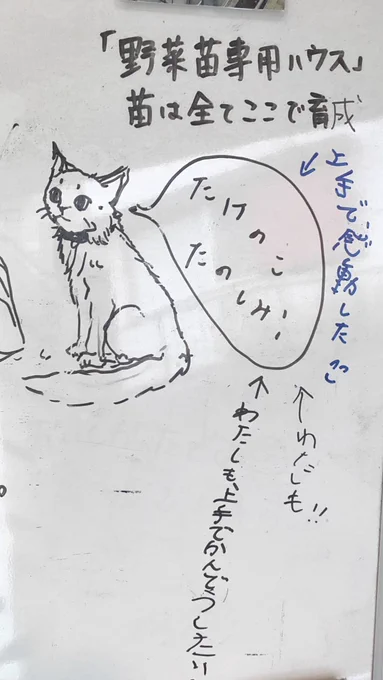 「野菜苗専用ハウス」
苗は全てここで育成
上手で感動した
たけのこ
たのしみ!
わたしも!!
わたしも、上手でかんどうしたり